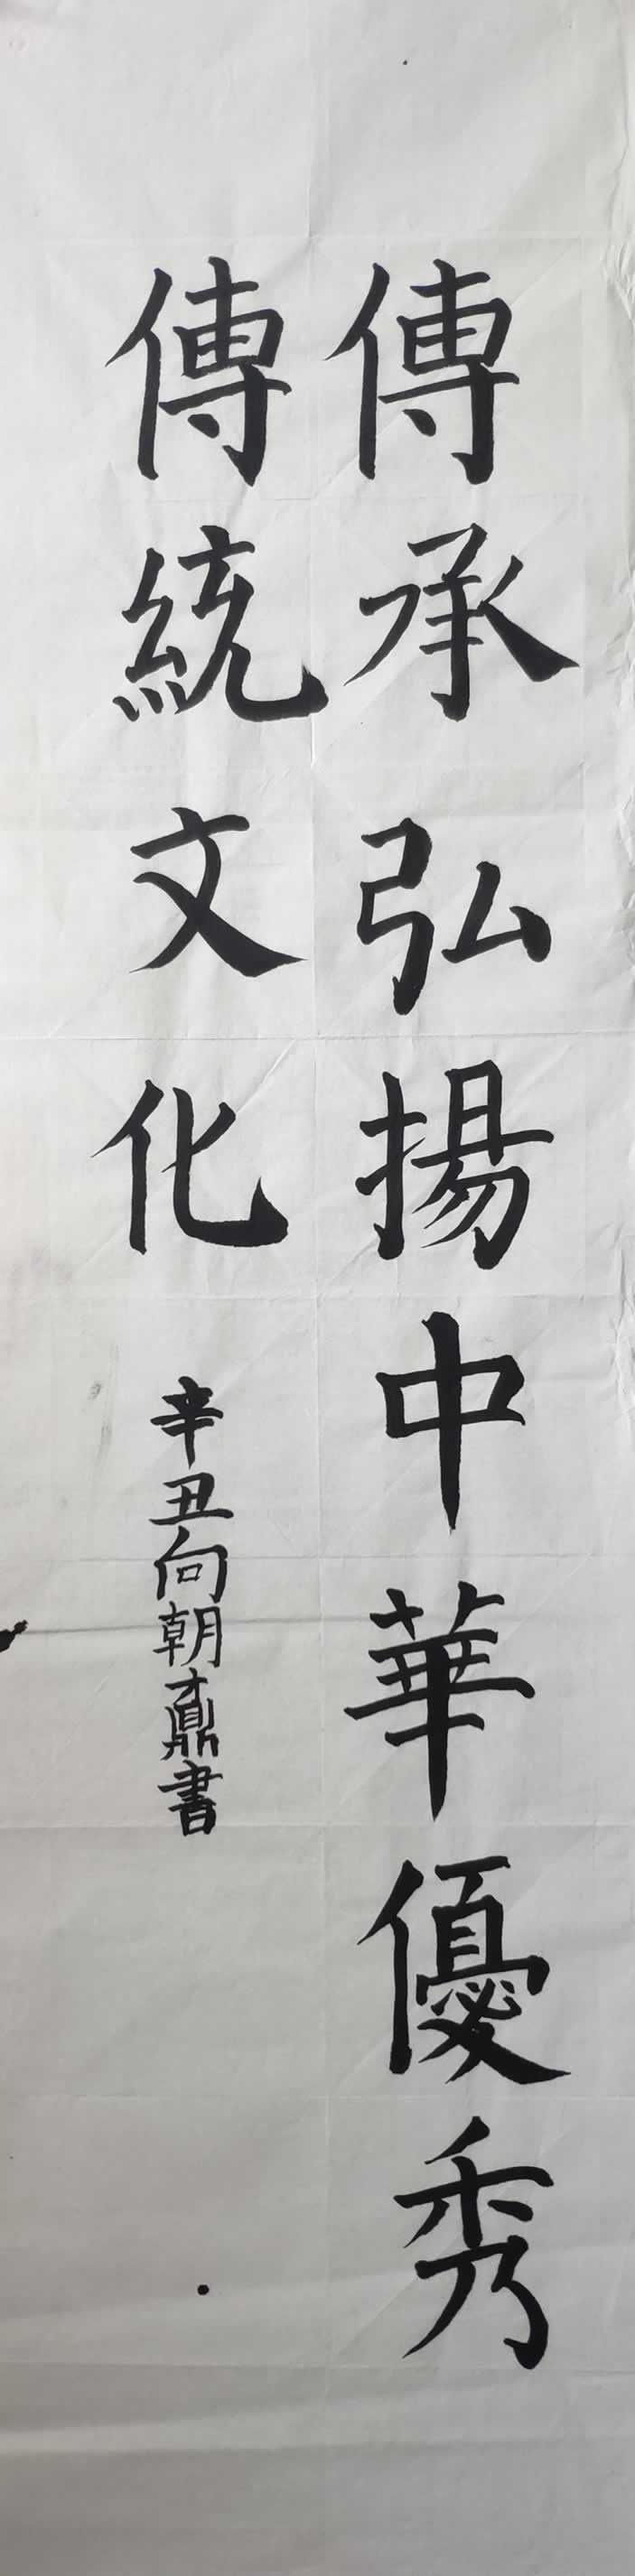 傳承弘揚中華優秀
傳統文化
辛丑向朝鼎書